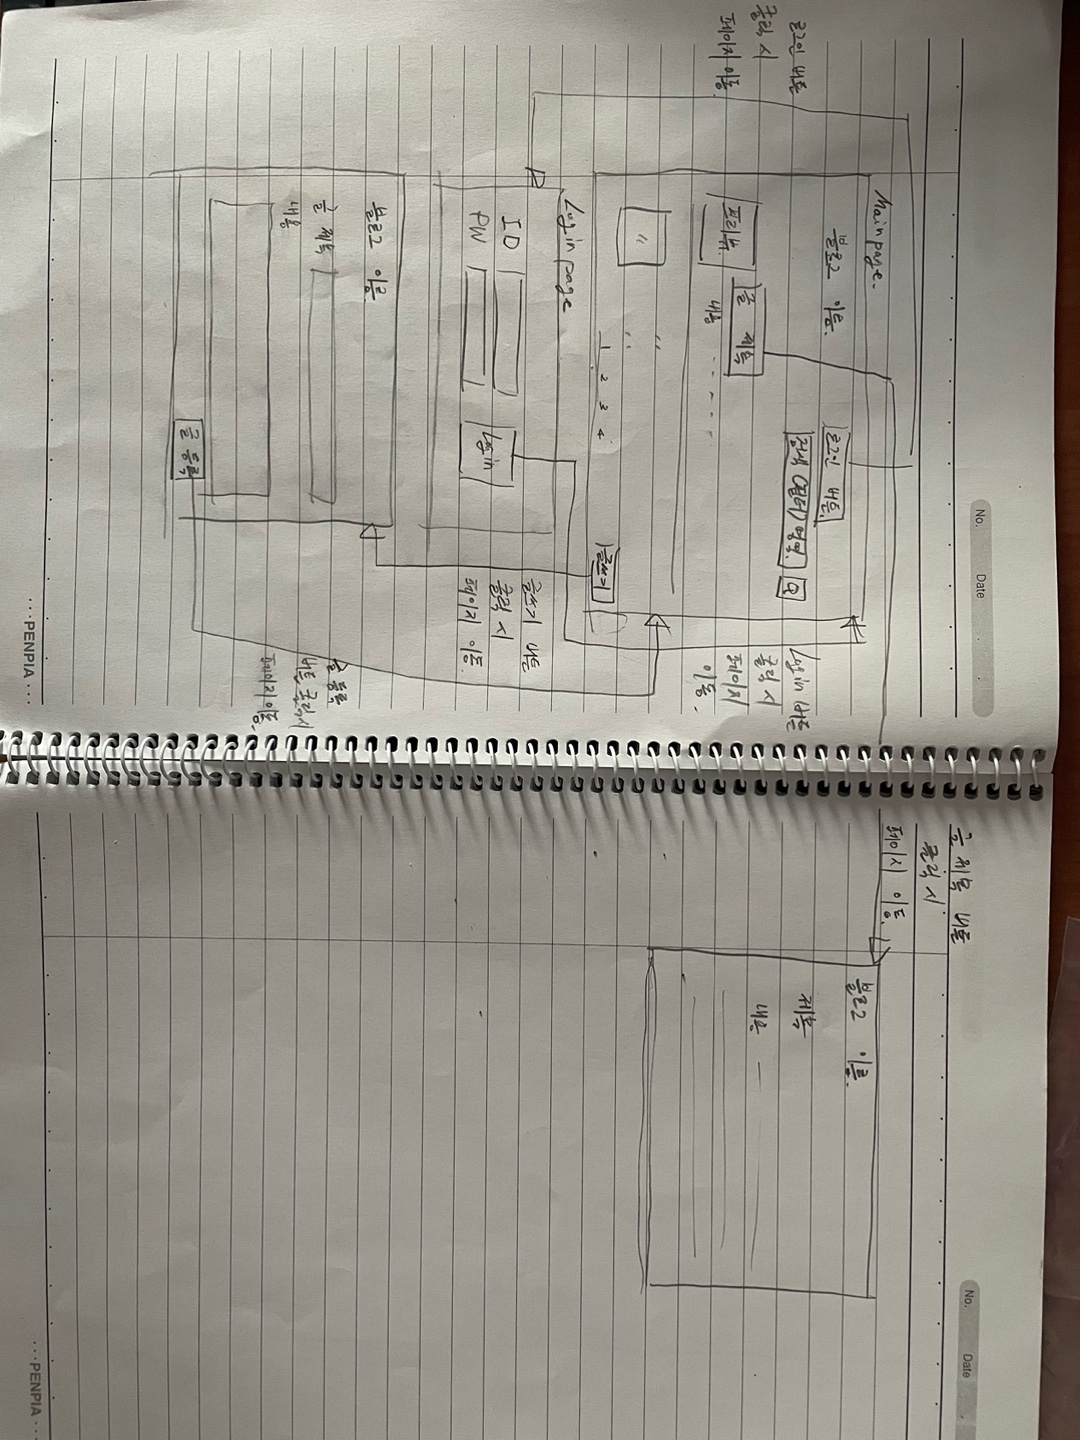 No. Date
Main page.
블로그 이름.
로그인 버튼.
검색 (필터) 영역. Q
로그인 버튼
클릭 시
페이지 이동
프리뷰.
글 제목
내용 - - - - -
Log in 버튼
클릭 시
페이지
이동.
〃 〃
1 2 3 4
글쓰기
Log in page
ID
PW
Log in
글쓰기 버튼
클릭 시
페이지 이동.
블로그 이름.
글 제목
내용
글 등록
버튼 클릭시
페이지 이동.
글 등록
···PENPIA···
No. Date
글 제목 버튼
클릭 시
페이시 이동.
블로그 이름.
제목
내용
···PENPIA···